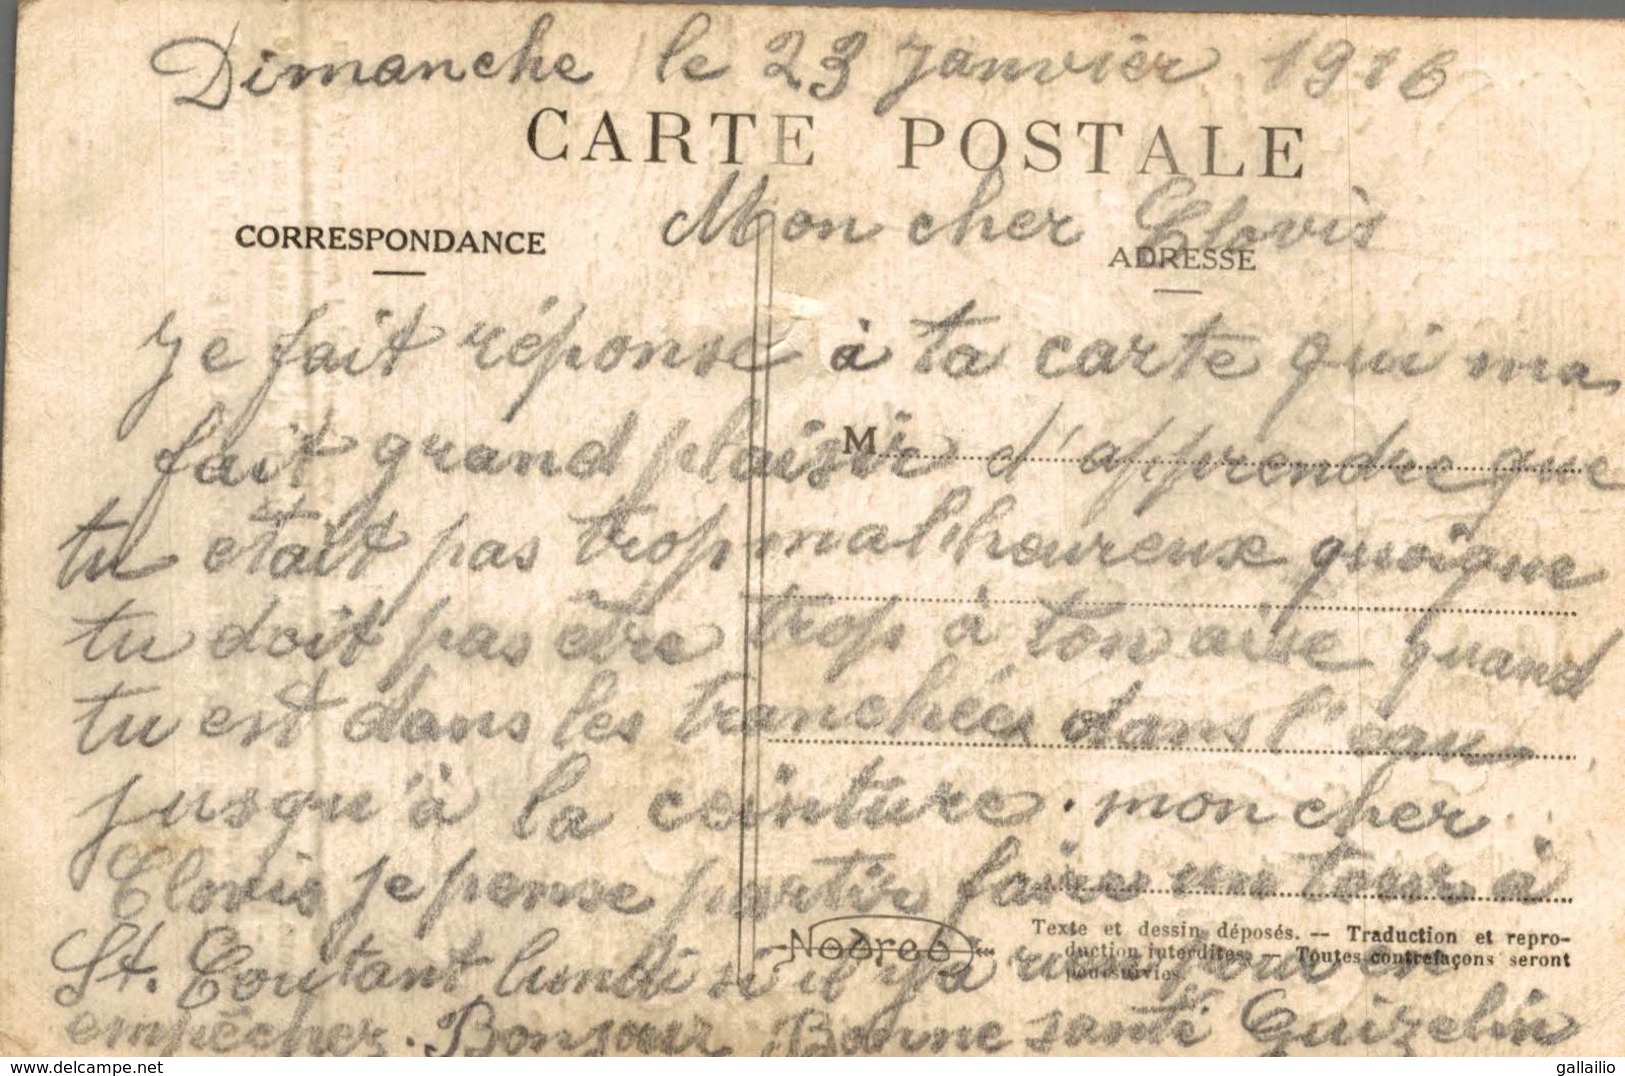 Dimanche le 23 Janvier 1916
CARTE POSTALE
Mon cher Clovis
CORRESPONDANCE
ADRESSE
Je fait réponse à ta carte qui ma
M
fait grand plaisir d'apprendre que
tu etait pas trop malheureux quoique
tu doit pas être trop à ton aise quand
tu est dans les tranchées dans l'eau
jusqu'à la ceinture. mon cher
Clovis je pense partir faire un tour à
Texte et dessin déposés. — Traduction et repro-
duction interdites. — Toutes contrefaçons seront
poursuivies
St. Coutant lundi si il y a rien pour en
empêcher. Bonjour Bonne santé
gallailio